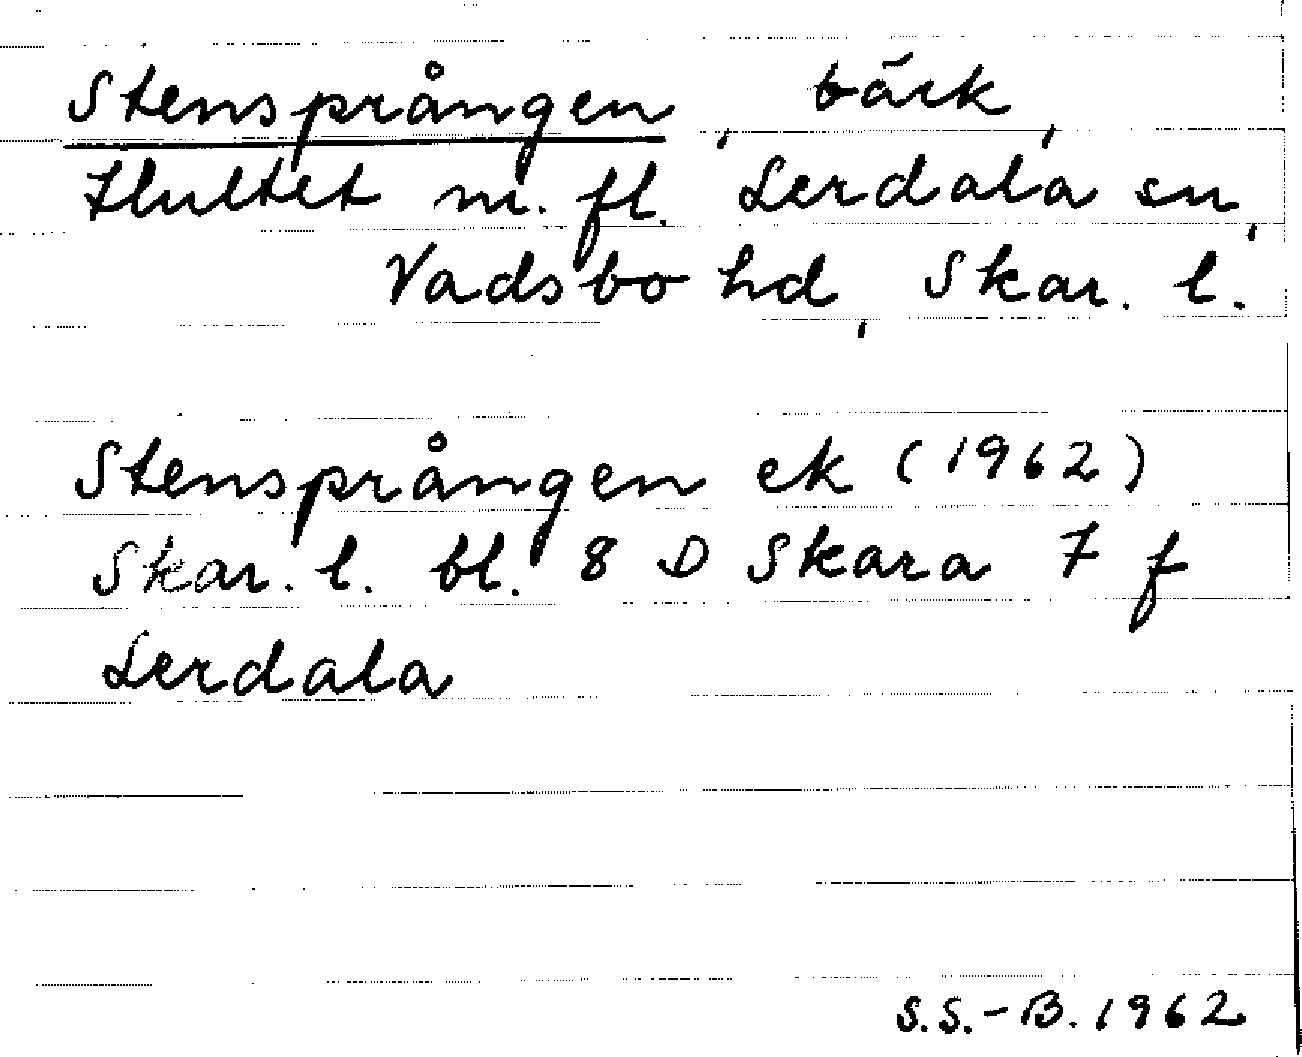 Stensprången, bäck,
Hultet m. fl. Lerdala sn,
Vadsbo hd, Skar. l.
Stensprången ek (1962)
Skar. l. bl. 8 D Skara 7 f
Lerdala
S.S.-B. 1962